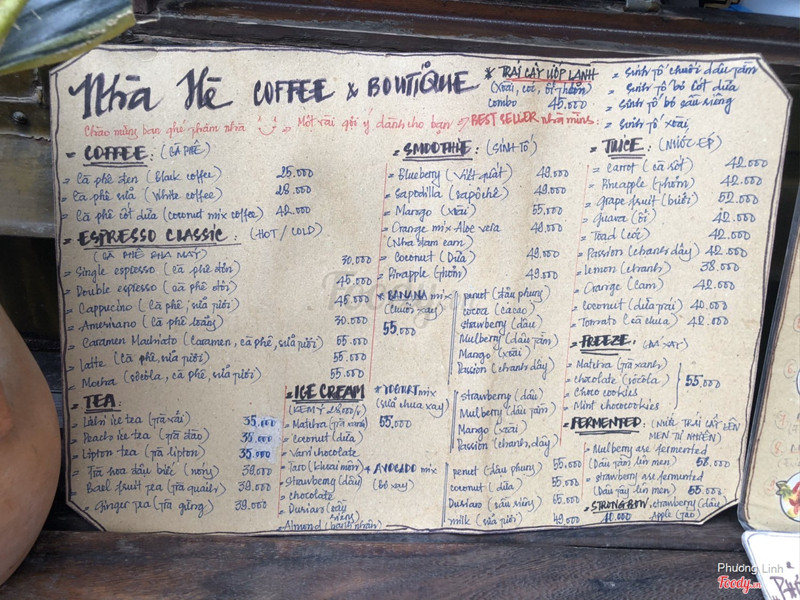 Nhà Hè COFFEE & BOUTIQUE
* TRÁI CÂY ƯỚP LẠNH
(Xoài, cóc, ổi, thơm)
combo 45.000
= Sinh tố chuối dâu tằm
= Sinh tố bơ cốt dừa
= Sinh tố bơ sầu riêng
= Sinh tố xoài
Chào mừng bạn ghé thăm nhà
Một vài gợi ý dành cho bạn BEST SELLER nhà mình:
= COFFEE: (CÀ PHÊ)
= Cà phê đen (Black coffee) 25.000
= Cà phê sữa (White coffee) 28.000
= Cà phê cốt dừa (coconut mix coffee) 42.000
= ESPRESSO CLASSIC: (HOT / COLD)
(CÀ PHÊ PHA MÁY)
Single espresso (cà phê đơn) 30.000
Double espresso (cà phê đôi) 45.000
Cappucino (cà phê, sữa tươi) 45.000
Americano (cà phê loãng) 30.000
Caramen Machiato (Caramen, cà phê, sữa tươi) 55.000
Latte (cà phê, sữa tươi) 55.000
Mocha (sôcôla, cà phê, sữa tươi) 55.000
= TEA:
= Lychee ice tea (trà vải) 35.000
= Peach ice tea (trà đào) 35.000
= Lipton tea (trà lipton) 35.000
= Trà hoa đậu biếc (nóng) 39.000
= Bael fruit tea (trà quách) 39.000
= Ginger tea (trà gừng) 39.000
= SMOOTHIE: (SINH TỐ)
= Blueberry (việt quất) 49.000
= Sapodilla (sapôchê) 49.000
= Mango (xoài) 55.000
= Orange mix Aloe vera 49.000
(Nha đam cam)
= Coconut (Dừa) 49.000
= Pineapple (thơm) 49.000
* BANANA mix
(chuối xay)
55.000
penut (đậu phụng)
cocoa (cacao)
strawberry (dâu)
Mulberry (dâu tằm)
Mango (xoài)
Passion (chanh dây)
= ICE CREAM
(KEM Ý 28.000/v)
= Matcha (trà xanh)
= coconut (dừa)
= Vani chocolate
Taro (khoai môn)
Strawbeary (dâu)
= chocolate
= Durian (sầu riêng)
= Almond (hạnh nhân)
* YOGURT mix
(sữa chua xay)
65.000
strawberry (dâu)
Mulberry (dâu tằm)
Mango (xoài)
Passion (chanh dây)
* AVOCADO mix
(bơ xay)
penut (đậu phụng) 55.000
coconut (dừa) 55.000
Durian (sầu riêng) 65.000
milk (sữa tươi) 49.000
= JUICE: (NƯỚC ÉP)
= Carrot (cà rốt) 42.000
= Pineapple (thơm) 42.000
= Grape fruit (bưởi) 52.000
= Guava (ổi) 42.000
= Toad (cóc) 42.000
= Passion (chanh dây) 42.000
= Lemon (chanh) 38.000
= Orange (cam) 42.000
= Coconut (dừa trái) 40.000
= Tomato (cà chua) 42.000
= FREEZE: (ĐÁ XAY)
= Matcha (trà xanh)
= chocolate (sôcôla) 55.000
= Choco cookies
= Mint chococookies
= FERMENTED: (NƯỚC TRÁI CÂY LÊN
MEN TỰ NHIÊN)
= Mulberry ace fermented
(Dâu tằm lên men) 58.000
= strawberry ace fermented
(Dâu tây lên men) 65.000
= STRONGBOW: strawberry (dâu)
40.000 Apple (táo)
Foody
Phương Linh
Foody.vn